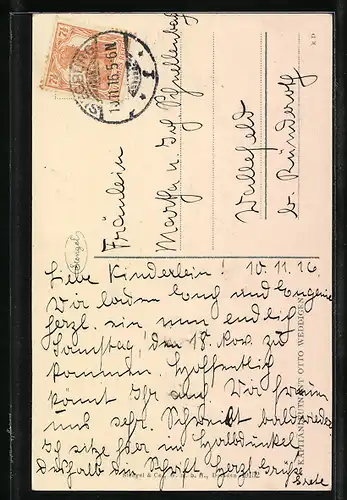 Fräulein
Martha u. Schnellenberg
Wallefeld
b. Ründeroth
Stengel
Liebe Kinderlein! 10.11.16.
Wir laden Euch und Eugenie
herzl. ein nun endlich
Samstag, den 18. Nov. zu
kommen. Hoffentlich
kömt Ihr auch. Wir freuen
uns sehr. Schreibt bald wieder.
Ich sitze hier im Halbdunkel
deshalb die Schrift. Herzl. Grüße
Grete
KAPITÄNLEUTNANT OTTO WEDDIGEN
SIEGBURG
10.11.16.5-6N.
7½